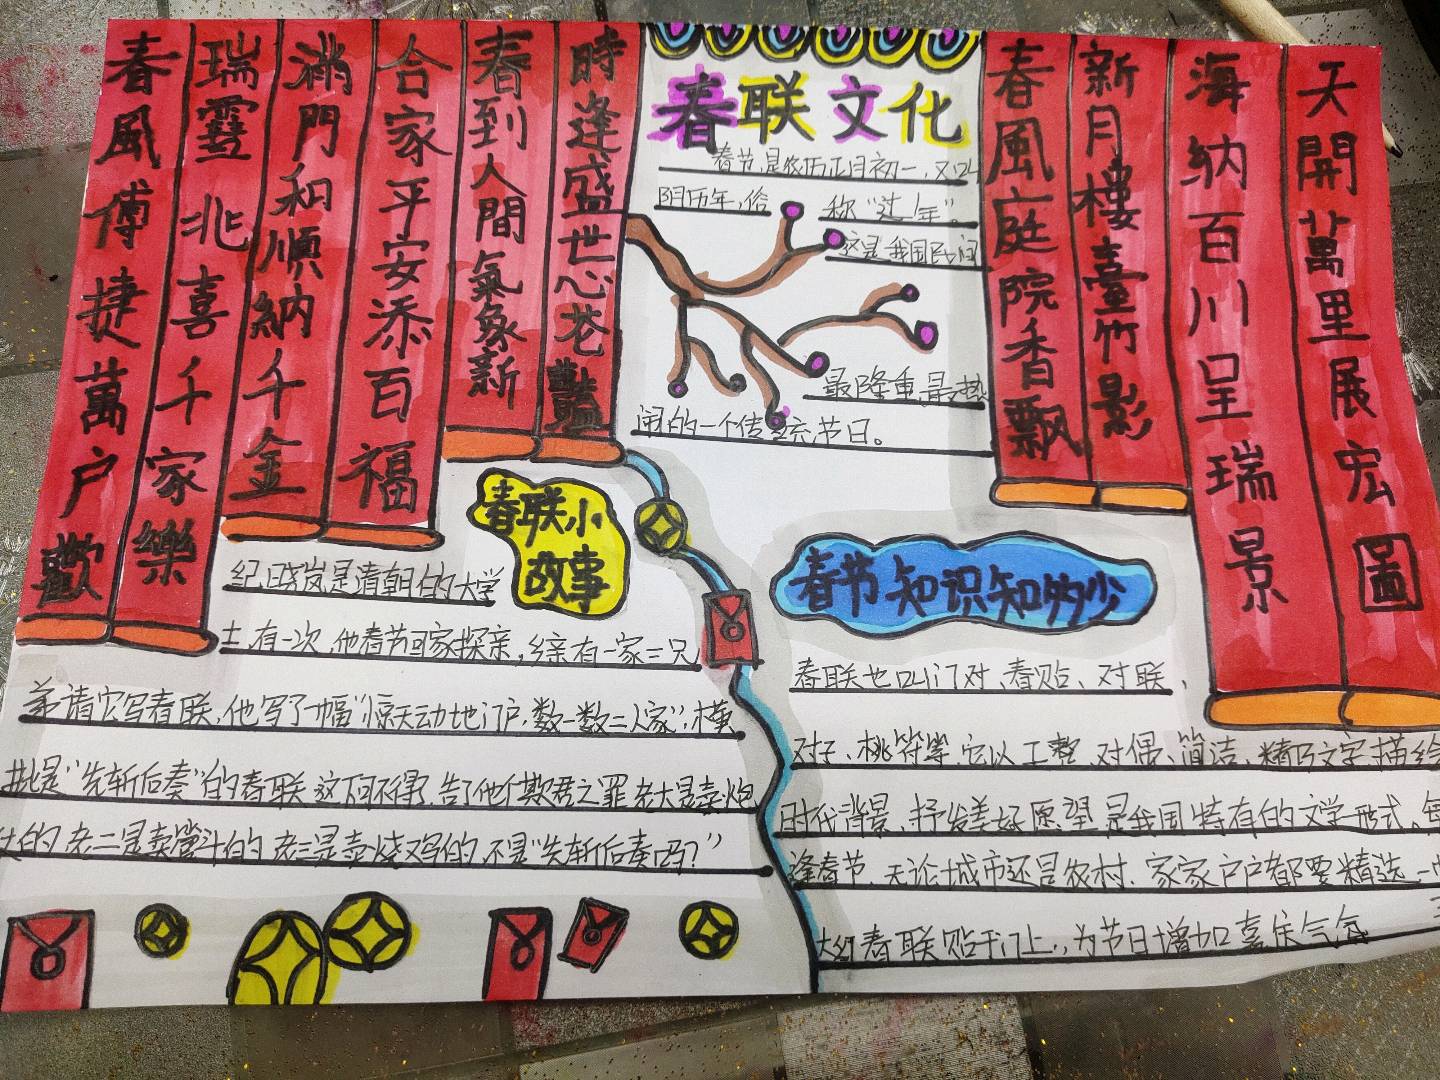 春風傳捷萬户歡
瑞靈兆喜千家樂
满門和順納千金
合家平安添百福
春到人間氣象新
時逢盛世心花豔
春联文化
春节,是农历正月初一,又叫
阴历年,俗 称“过年”。
这是我国民间
最隆重,最热
闹的一个传统节日。
春風庭院香飘
新月樓臺竹影
海納百川呈瑞景
天開萬里展宏圖
春联小
故事
纪晓岚是清朝的大学
士,有一次,他春节回家探亲,乡亲有一家三兄
弟请它写春联,他写了一幅“惊天动地门户,数一数二人家”;横
批是“先斩后奏”的春联 这下可不得了,告了他个欺君之罪 老大是卖炮
仗的 老二是卖管斗的 老三是卖烧鸡的,不是“先斩后奏吗?”
春节知识知多少
春联也叫门对、春贴、对联、
对子、桃符等,它以工整、对偶、简洁、精巧文字描绘
时代背景、抒发美好愿望,是我国特有的文学形式、每
逢春节,无论城市还是农村,家家户户都要精选一
大红春联贴于门上,为节日增加喜庆气氛